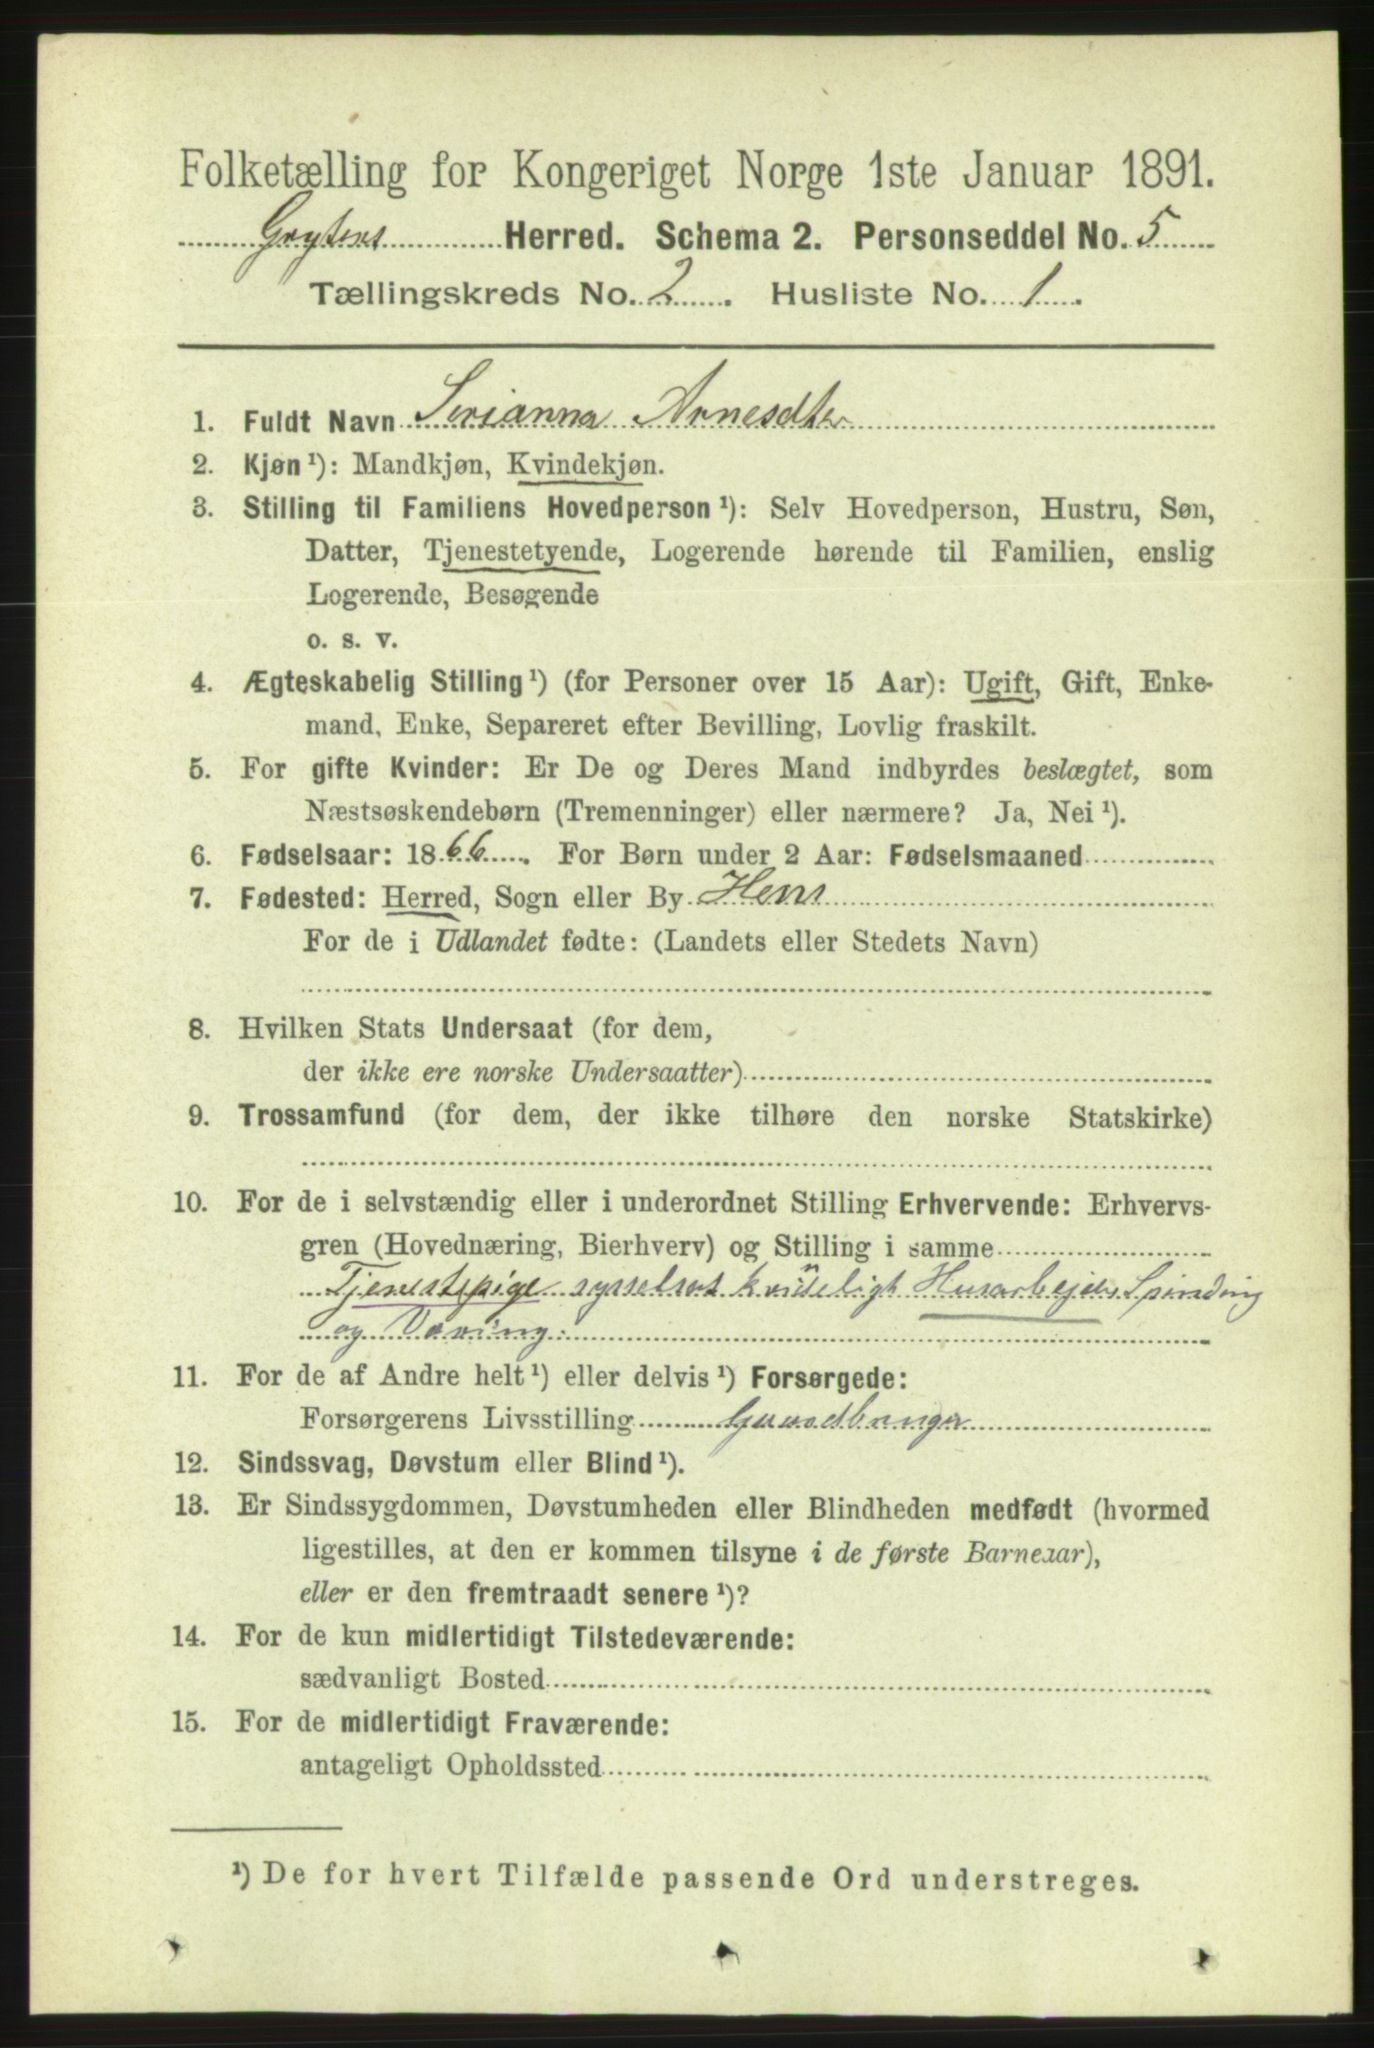 Folketælling for Kongeriget Norge 1ste Januar 1891.
Grytens Herred. Schema 2. Personseddel No. 5
Tællingskreds No. 2. Husliste No. 1.
1. Fuldt Navn Serianna Arnesdter
2. Kjøn¹): Mandkjøn, Kvindekjøn.
3. Stilling til Familiens Hovedperson¹): Selv Hovedperson, Hustru, Søn,
Datter, Tjenestetyende, Logerende hørende til Familien, enslig
Logerende, Besøgende
o. s. v.
4. Ægteskabelig Stilling¹) (for Personer over 15 Aar): Ugift, Gift, Enke-
mand, Enke, Separeret efter Bevilling, Lovlig fraskilt.
5. For gifte Kvinder: Er De og Deres Mand indbyrdes beslægtet, som
Næstsøskendebørn (Tremenninger) eller nærmere? Ja, Nei¹).
6. Fødselsaar: 1866. For Børn under 2 Aar: Fødselsmaaned
7. Fødested: Herred, Sogn eller By Hens
For de i Udlandet fødte: (Landets eller Stedets Navn)
8. Hvilken Stats Undersaat (for dem,
der ikke ere norske Undersaatter)
9. Trossamfund (for dem, der ikke tilhøre den norske Statskirke)
10. For de i selvstændig eller i underordnet Stilling Erhvervende: Erhvervs-
gren (Hovednæring, Bierhverv) og Stilling i samme
Tjenestepige sysselsat kvideligt Husarbejde Spinding
og Væving.
11. For de af Andre helt¹) eller delvis¹) Forsørgede:
Forsørgerens Livsstilling Gaardbruger
12. Sindssvag, Døvstum eller Blind¹).
13. Er Sindssygdommen, Døvstumheden eller Blindheden medfødt (hvormed
ligestilles, at den er kommen tilsyne i de første Barneaar),
eller er den fremtraadt senere¹)?
14. For de kun midlertidigt Tilstedeværende:
sædvanligt Bosted
15. For de midlertidigt Fraværende:
antageligt Opholdssted
¹) De for hvert Tilfælde passende Ord understreges.